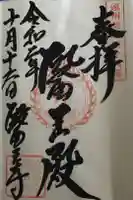 奉拝
醫王殿
令和二年
十月十六日
醫王寺